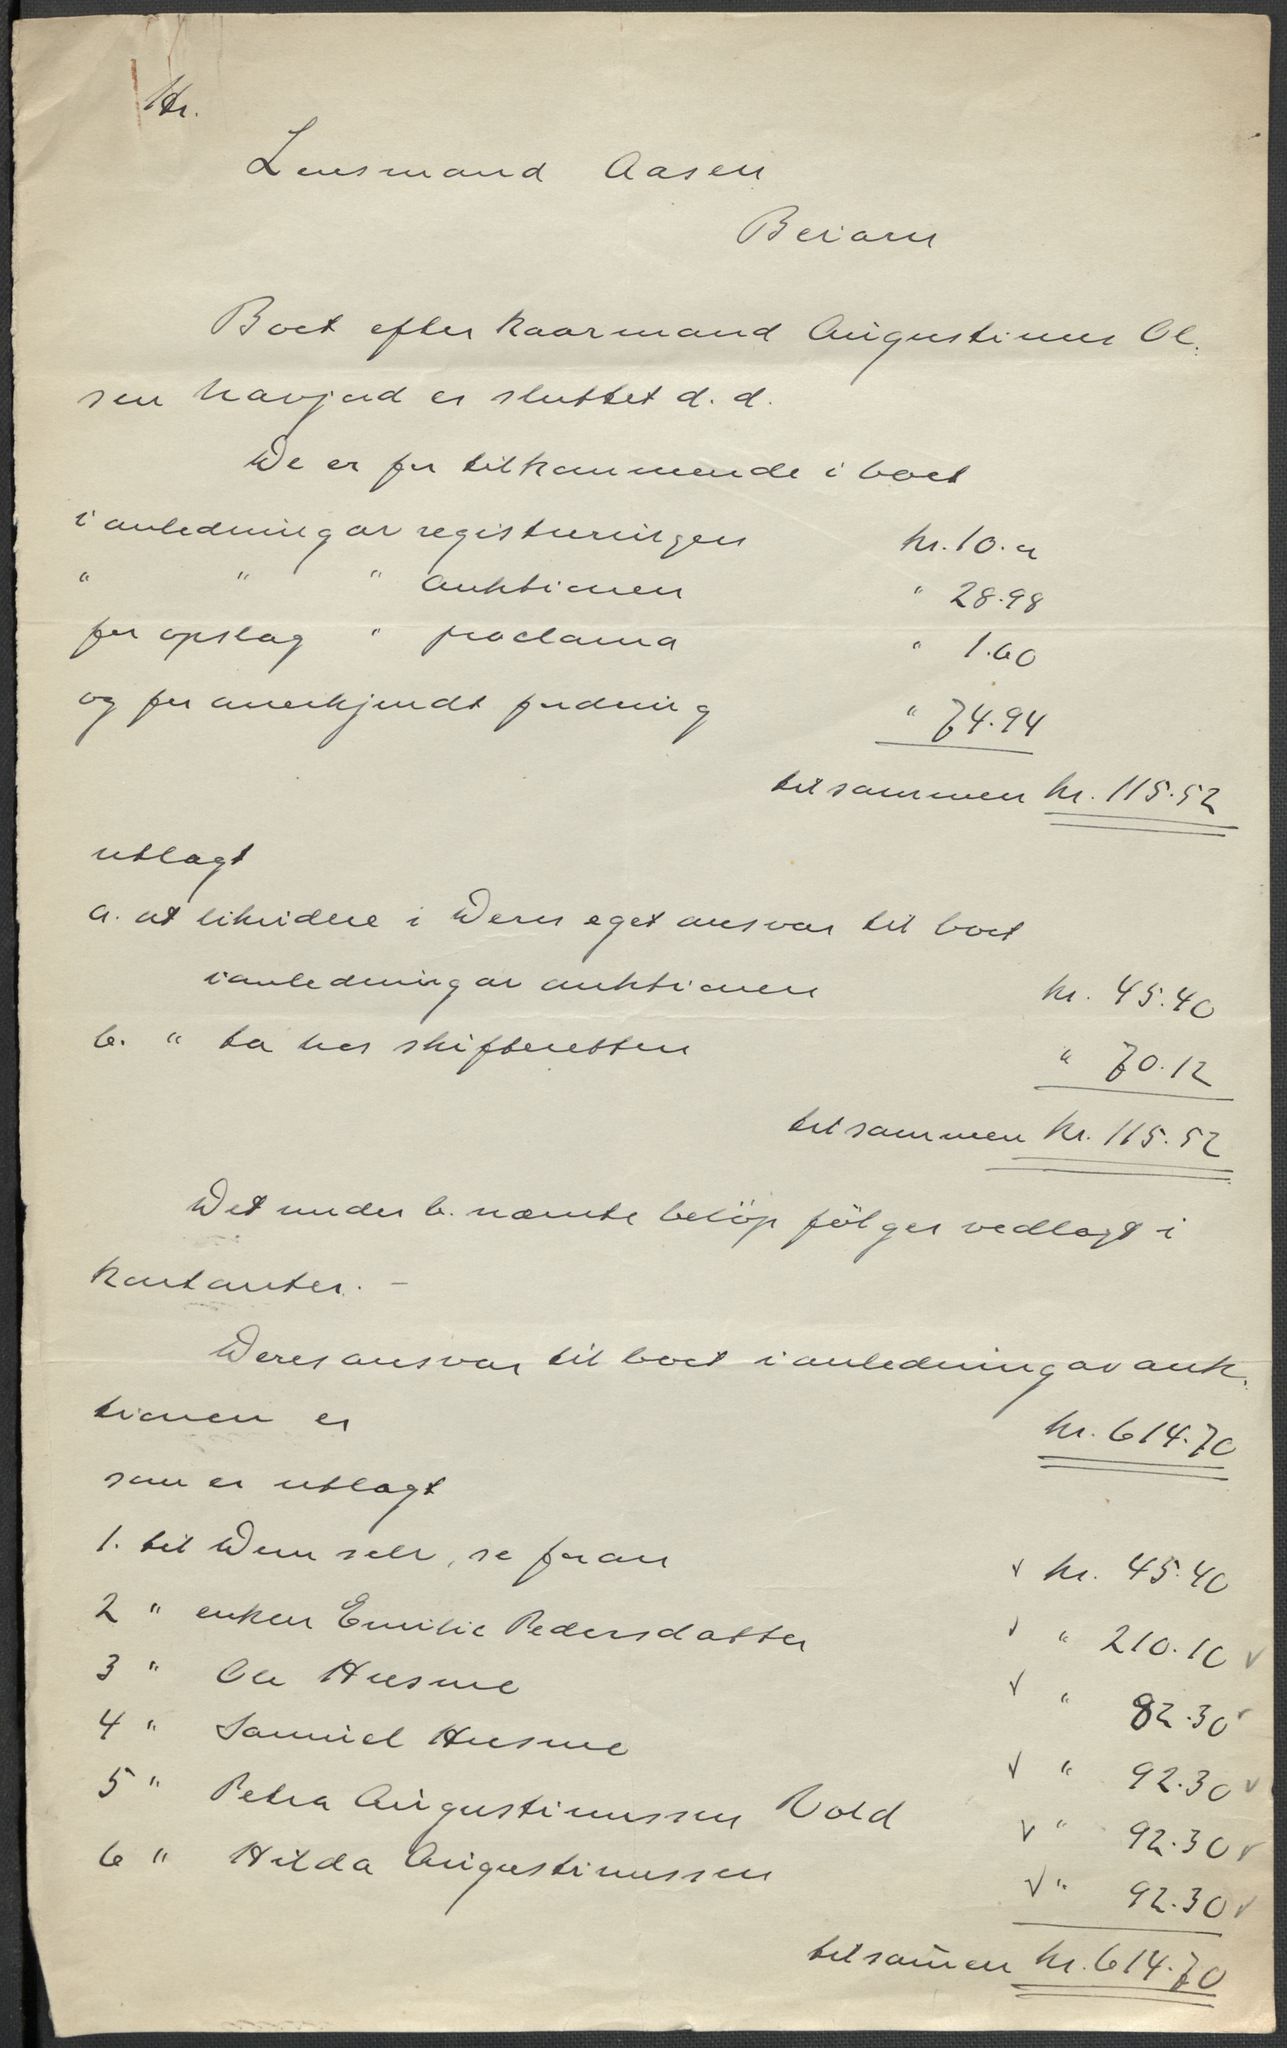 Hr.
Lensmand Aasen
Beiarn
Boet efter kaarmand Augustinus Ol-
sen Navjord er sluttet d. d.
De er for tilkommende i boet
i anledning av registreringen kr. 10.„
" " " auktionen " 28.98
for opslag " proclama " 1.60
og for anerkjendt fordring " 74.94
tilsammen kr. 115.52
utlagt
a. at likvidere i Deres eget ansvar til boet
i anledning av auktionen kr. 45.40
b. " ta hos skifteretten " 70.12
tilsammen kr. 115.52
Det under b. nævnte beløp følger vedlagt i
kontanter. –
Deres ansvar til boet i anledning av auk-
tionen er kr. 614.70
som er utlagt
1. til Dem selv, se foran kr. 45.40
2 " enken Emilie Pedersdatter " 210.10
3 " Ole Husmo " 82.30
4 " Samuel Husmo " 92.30
5 " Petra Augustinussen Vold " 92.30
6 " Hilda Augustinussen " 92.30
tilsam̄en kr. 614.70